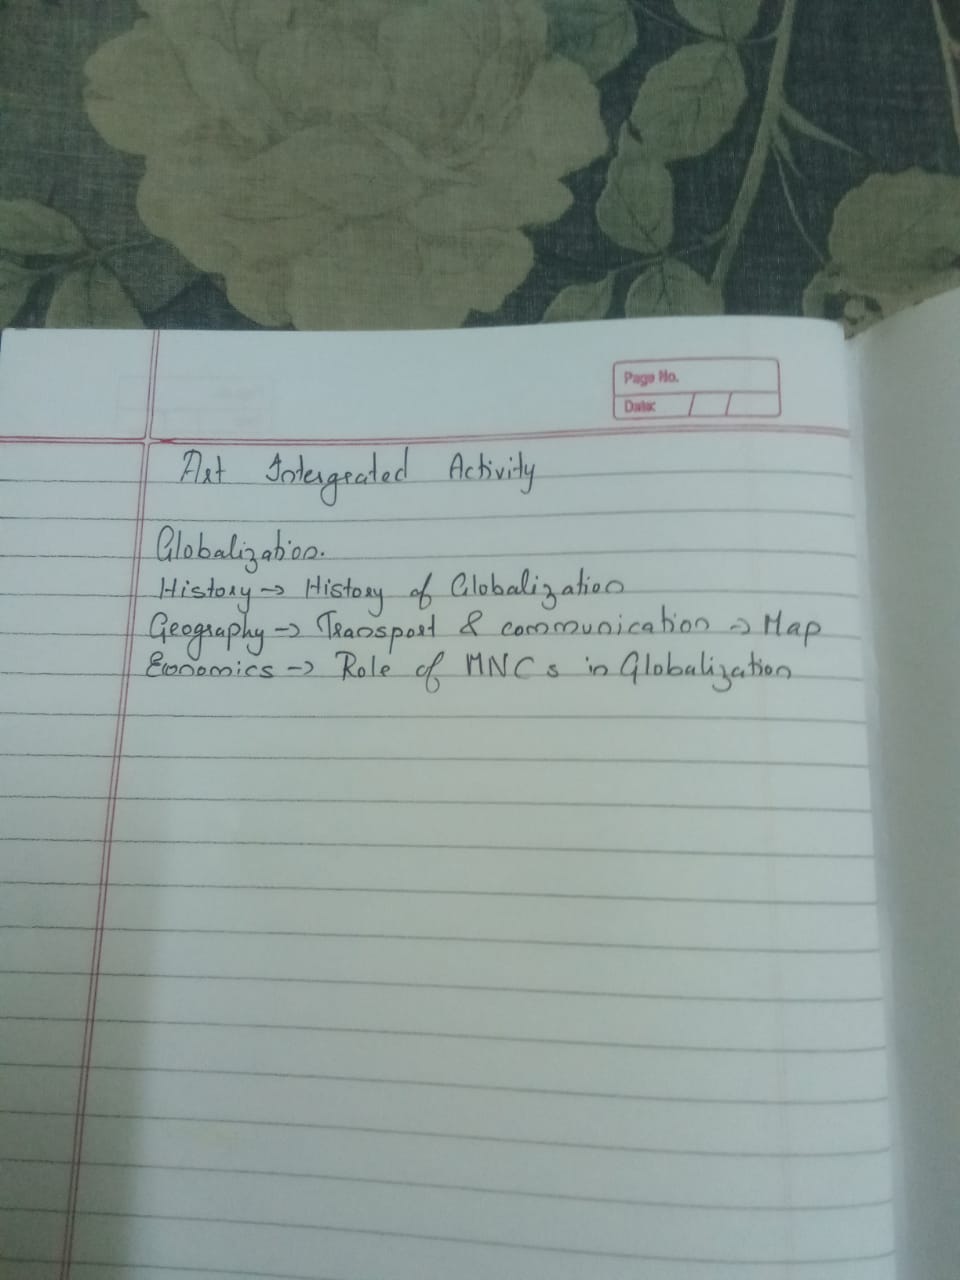 Page No.
Date: / /
Art Intergrated Activity
Globalization.
History → History of Globalization
Geography → Transport & communication → Map
Economics → Role of MNCs in Globalization